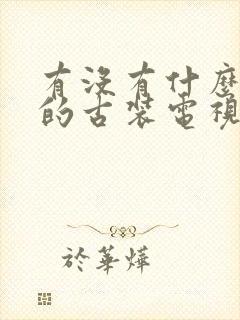 有沒有什麼
的古裝電視
於華燁